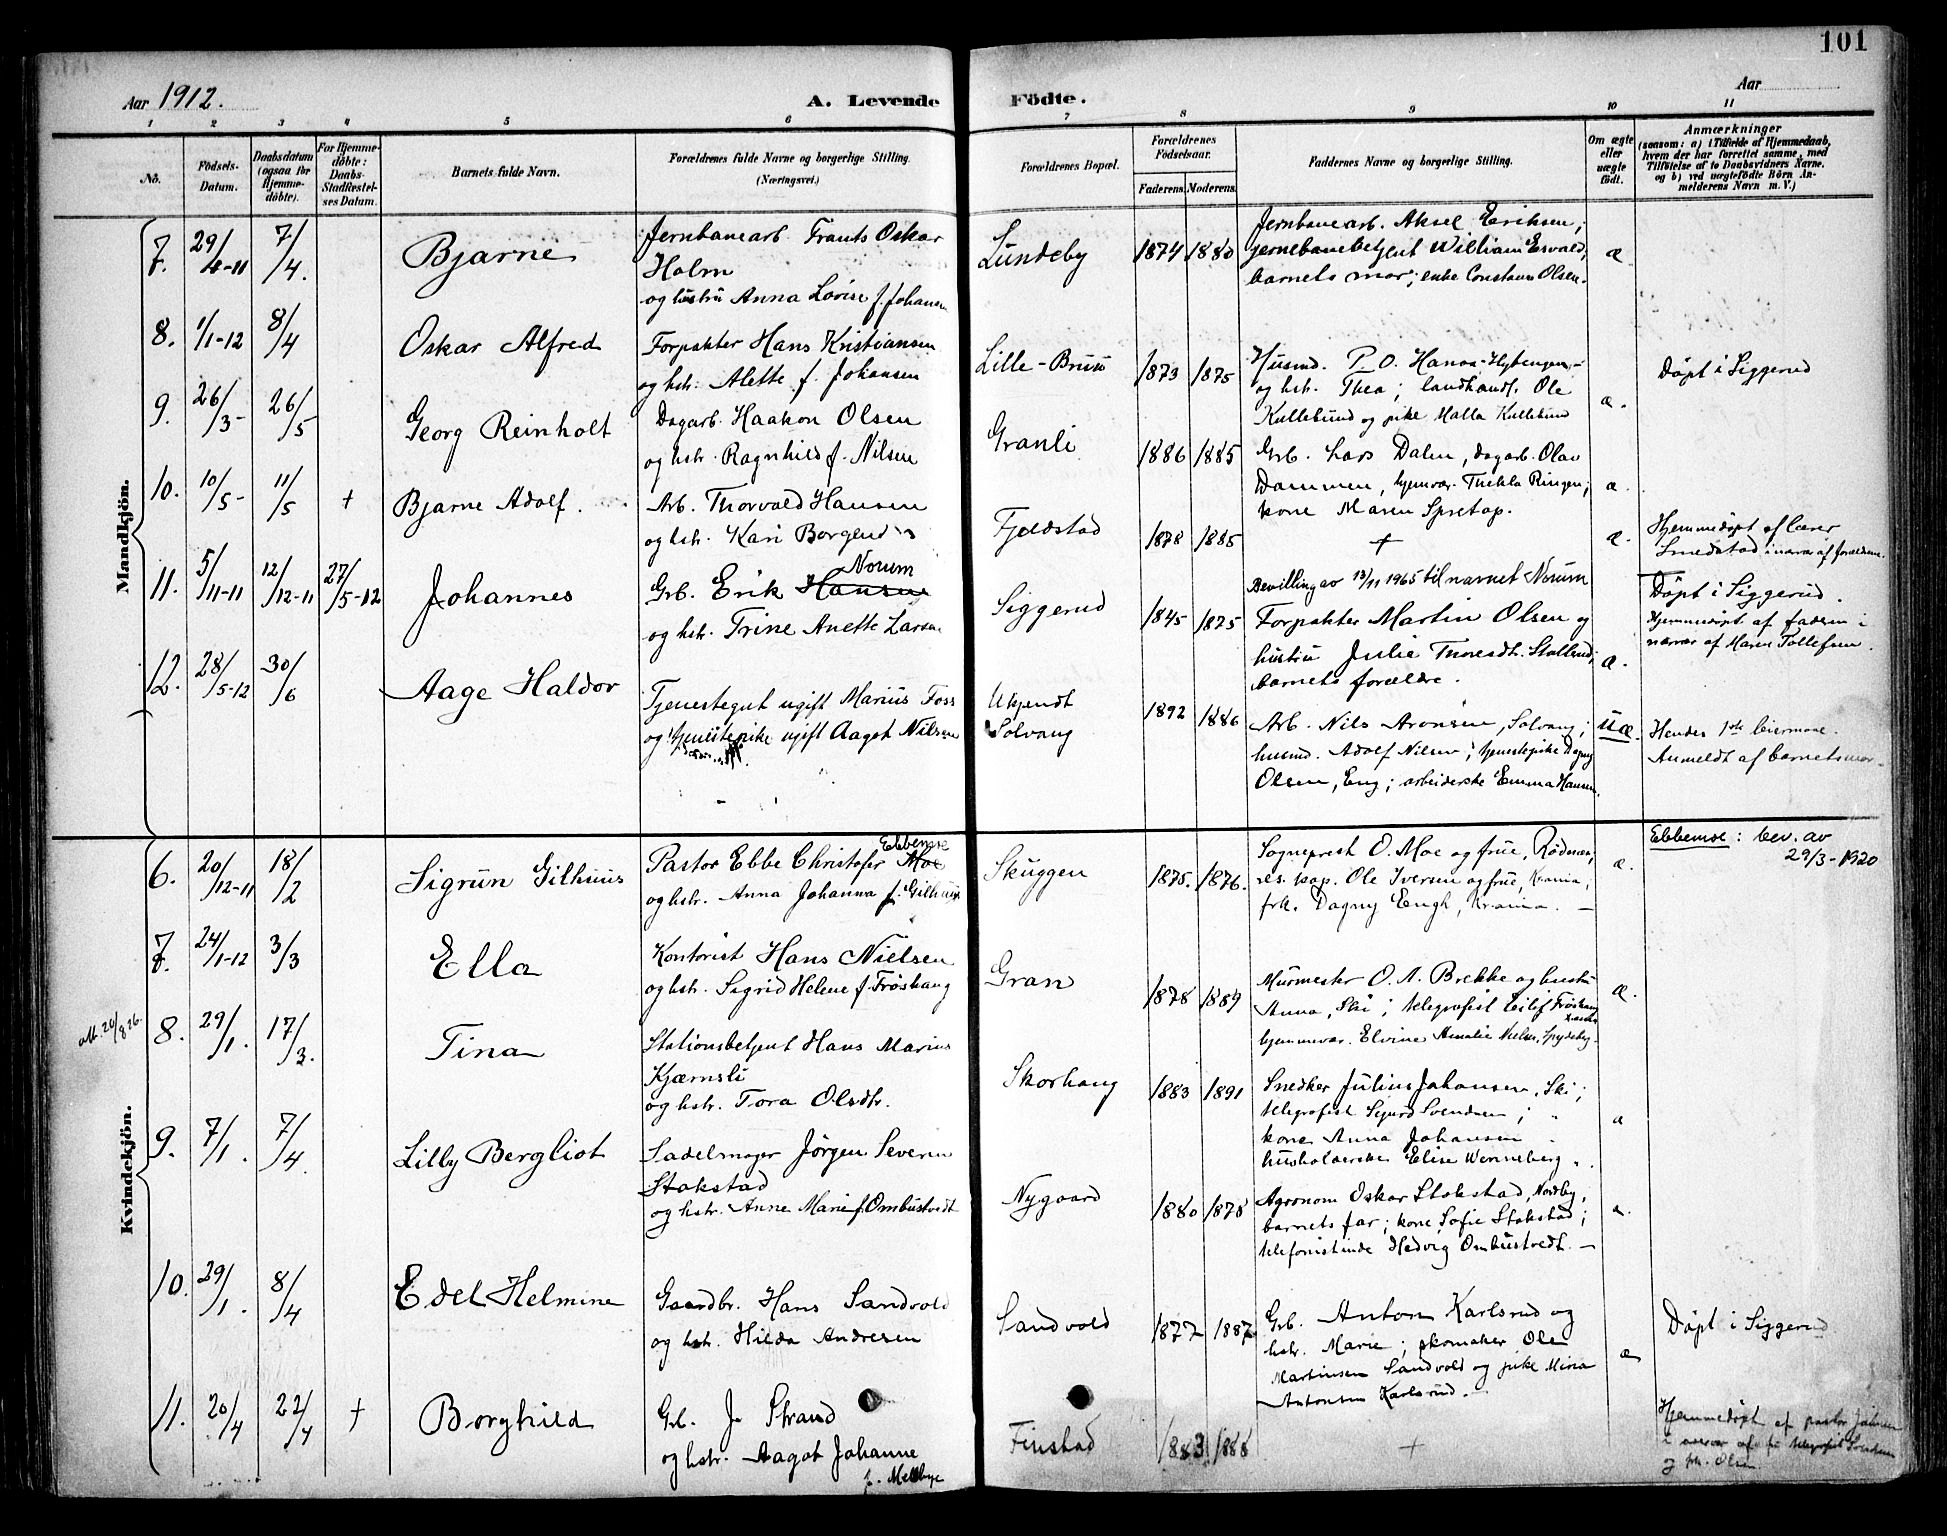 101
Aar 1912.
A. Levende Fødte.
Aar
1 2 3 4 5 6 7 8 9 10 11
No.
Födsels-Datum.
Daabsdatum (ogsaa for Hjemme-döbte).
For Hjemme-döbte: Daabs-Stadfæstel-ses Datum.
Barnets fulde Navn.
Forældrenes fulde Navne og borgerlige Stilling. (Næringsvei.)
Forældrenes Bopæl.
Forældrenes Födselsaar.
Faderens. Moderens.
Faddernes Navne og borgerlige Stilling.
Om ægte eller uægte födt.
Anmærkninger (saasom: a) i Tilfælde af Hjemmedaab, hvem der har forrettet samme, med Tilföielse af to Daabsvidners Navne, og b) ved uægtefödte Börn An-melderens Navn m. V.)
Mandkjön.
7. 29/4-11 7/4. Bjarne
Jernbanearb. Frants Oskar
Holm
og hustru Anna Lovise f. Johansen
Lundeby 1874 1880
Jernbanearb. Aksel Eriksen;
jernebanebetjent William Esvald;
barnets mor; enke Constanse Olsen.
æ
8. 1/1-12 8/4 Oskar Alfred
Forpakter Hans Kristiansen
og hstr. Alette f. Johansen
Lille-Bruu 1873 1875
Husmd. P. O. Hanoa-Hybengen,
og hst. Thea; landhandl. Ole
Kullebund og pike Malla Kullebund
æ.
Døpt i Siggerud
9. 26/3- 26/5 Georg Reinholt
Dagarb. Haakon Olsen
og hstr. Ragnhild f. Nilsen
Granli 1886 1885
Grb. Lars Dalen, dagarb. Olav
Dammen, hjemvær. Thekla Ringen;
kone Maren Spretop.
æ.
10. 10/5- 11/5 + Bjarne Adolf.
Arb. Thorvald Hansen
og hstr. Kari Borgen
Fjeldstad 1878 1885
+
æ.
Hjemmedøpt af lærer
Smedstad i nærv. af forældrene.
11. 5/11-11 12/12-11 27/5-12 Johannes
Norum
Grb. Erik Hansen
og hstr. Trine Anette Larsen
Siggerud 1845 1875
Bevilling av 13/11 1965 til navnet Norum
Forpakter Martin Olsen og
hustru Julie Thoresdt. Stallerud;
barnets forældre.
æ.
Døpt i Siggerud.
Hjemmedøpt af faderen i
nærvær af Maren Tollefsen.
12. 28/5-12 30/6 Aage Haldor
Tjenestegut ugift Marius Foss
og tjenestepike ugift Aagot Nilsen
Ukjendt
Solvang
1892 1886
Arb. Nils Aronsen, Solvang;
husmd. Adolf Nilsen; tjenestepike Dagny
Olsen, Eng; arbeiderske Emma Hansen.
uæ.
Hendes 1ste leiermaal.
Anmeldt af barnets mor.
Kvindekjön.
6. 20/12-11 18/2 Sigrun Gilhuus
Ebbemoe
Pastor Ebbe Christofer Moe
og hstr. Anna Johanna f. Gilhuus
Skuggen 1875. 1876.
Sogneprest O. Moe og frue, Rødnæs;
res. kap. Ole Iversen og frue, Krania,
frk. Dagny Engh, Krania.
æ.
Ebbemoe: bev. av
29/3-1920
7. 24/1-12 3/3 Ella
Kontorist Hans Nielsen
og hstr. Sigrid Helene f. Frøshaug
Gran 1878 1889
Murmester O. A. Brekke og hustru
Anna, Ski; telegrafist Eilif Frøshaug
hjemmevær. Elvine Amalie Nielsen, Spydeberg.
æ.
att. 20/8 26.
8. 29/1. 17/3. Tina
Stationsbetjent Hans Marius
Kjærnsli
og hstr. Tora Olsdtr.
Skorhaug 1883 1891
Snedker Julius Johansen, Ski;
telegrafist Sigurd Svendsen; "
kone Anna Johansen "
husholderske Elise Wenneberg "
æ
9. 7/1. 7/4. Lilly Bergliot
Sadelmager Jørgen Severin
Stokstad
og hstr. Anne Marie f. Ombustvedt
Nygaard 1880 1878
Agronom Oskar Stokstad, Nordby;
barnets far; kone Sofie Stokstad;
telefonistinde Hedvig Ombustvedt.
æ.
10. 29/1. 8/4 Edel Helmine
Gaardbr. Hans Sandvold
og hstr. Hilda Andresen
Sandvold 1877 1887
Grb. Anton Karlsrud og
hstr. Marie; skomaker Ole
Martinsen Sandvold og pike Mina
Antonsen Karlsrud.
æ
Døpt i Siggerud
11. 20/4 22/4 + Borghild
Grb. J. Strand
og hstr. Aagot Johanne
f. Mellbye
Finstad 1883 1888
+
Hjemmedøpt af pastor
i nærvær af telegrafist Svendsen
og frk. Olsen